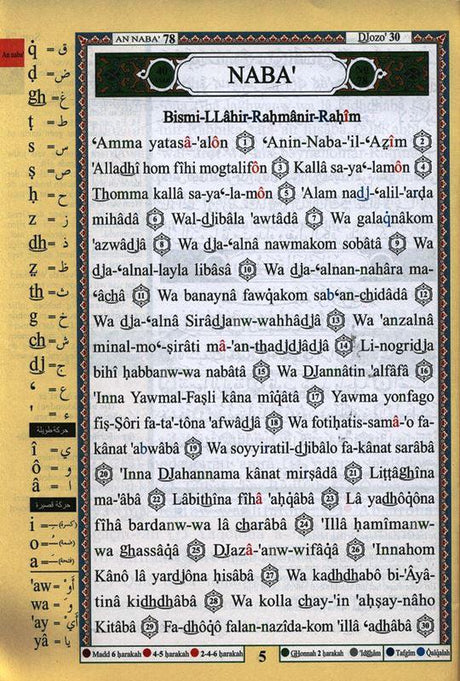 AN NABA' 78
DJozo' 30
An naba'
q̇ = ق
ḍ = ض
gh = غ
ṭ = ط
s = س
ṣ = ص
ḥ = ح
z = ز
dh = ذ
ẓ = ظ
th = ث
g = خ
ch = ش
dj = ج
‘ = ع
' = ء
حركة طويلة
î = ي
ô = و
â = ا
حركة قصيرة
i = (كسرة)
o = (ضمة)
a = (فتحة)
'aw = أَوْ
wa = وَ
'ay = أَيْ
yâ = يا
NABA'
Bismi-LLâhir-Raḥmânir-Raḥîm
‘Amma yatasâ-'alôn 1 ‘Anin-Naba-'il-‘Aẓîm 2
'Alladhî hom fîhi mogtalifôn 3 Kallâ sa-ya‘-lamôn 4
Thomma kallâ sa-ya‘-la-môn 5 'Alam nadj-‘alil-'arḍa
mihâdâ 6 Wal-djibâla 'awtâdâ 7 Wa galaq̇nâkom
'azwâdjâ 8 Wa dja-‘alnâ nawmakom sobâtâ 9 Wa
dja-‘alnal-layla libâsâ 10 Wa dja-‘alnan-nahâra ma-
‘âchâ 11 Wa banaynâ fawq̇akom sab‘an-chidâdâ 12
Wa dja-‘alnâ Sirâdjanw-wahhâdjâ 13 Wa 'anzalnâ
minal-mo‘-ṣirâti mâ-'an-thadjdjâdjâ 14 Li-nogridja
bihî ḥabbanw-wa nabâtâ 15 Wa DJannâtin 'alfâfâ 16
'Inna Yawmal-Faṣli kâna mîq̇âtâ 17 Yawma yonfago
fiṣ-Ṣôri fa-ta'-tôna 'afwâdjâ 18 Wa fotiḥatis-samâ-'o fa-
kânat 'abwâbâ 19 Wa soyyiratil-djibâlo fa-kânat sarâbâ
20 'Inna DJahannama kânat mirṣâdâ 21 Liṭṭâghîna
ma-'âbâ 22 Lâbithîna fîhâ 'aḥq̇âbâ 23 Lâ yadhôq̇ôna
fîhâ bardanw-wa lâ charâbâ 24 'Illâ ḥamîmanw-
wa ghassâq̇â 25 DJazâ-'anw-wifâq̇â 26 'Innahom
Kânô lâ yardjôna ḥisâbâ 27 Wa kadhdhabô bi-'Âyâ-
tinâ kidhdhâbâ 28 Wa kolla chay-'in 'aḥṣay-nâho
Kitâbâ 29 Fa-dhôq̇ô falan-nazîda-kom 'illâ ‘adhâbâ 30
Madd 6 ḥarakah
4-5 ḥarakah
2-4-6 ḥarakah
5
GHonnah 2 ḥarakah
'Idghâm
Tafgîm
Q̇alq̇alah